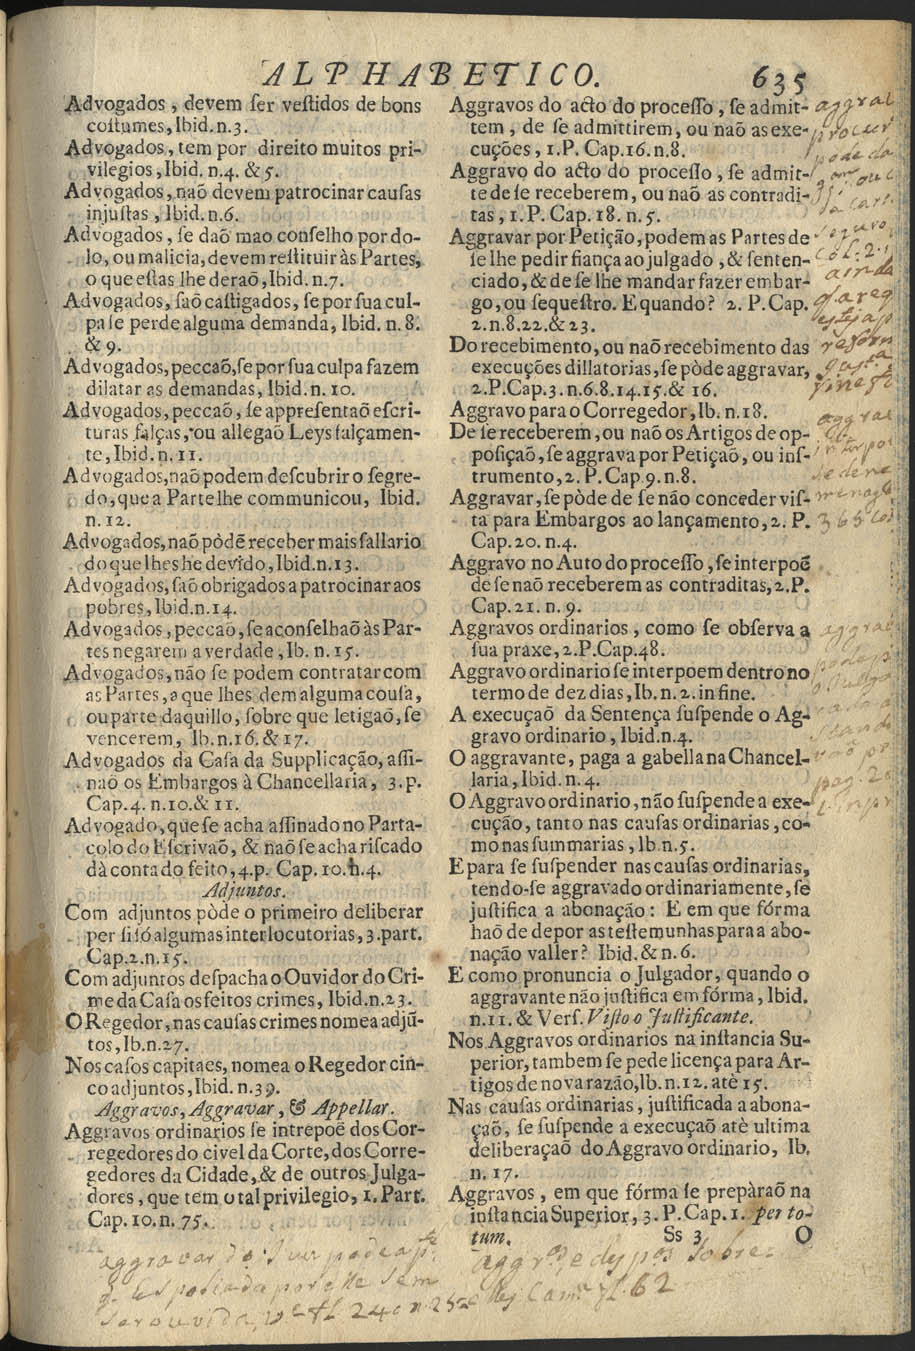 ALPHABETICO. 635
Advogados, devem ſer veſtidos de bons
coſtumes, Ibid.n.3.
Advogados, tem por direito muitos pri-
vilegios, Ibid. n.4. & 5.
Advogados, naõ devem patrocinar cauſas
injuſtas, Ibid. n.6.
Advogados, ſe daõ mao conſelho por do-
lo, ou malicia, devem reſtituir às Partes,
o que eſtas lhe deraõ, Ibid.n.7.
Advogados, ſaõ caſtigados, ſe por ſua cul-
pa ſe perde alguma demanda, Ibid. n. 8.
& 9.
Advogados, peccaõ, ſe por ſua culpa fazem
dilatar as demandas, Ibid.n. 10.
Advogados, peccaõ, ſe appreſentaõ eſcri-
turas falças, ou allegaõ Leys falçamen-
te, Ibid. n. 11.
Advogados, naõ podem deſcubrir o ſegre-
do, que a Parte lhe communicou, Ibid.
n. 12.
Advogados, naõ pòdẽ receber mais ſallario
do que lhes he devido, Ibid.n.13.
Advogados, ſaõ obrigados a patrocinar aos
pobres, Ibid.n.14.
Advogados, peccaõ, ſe aconſelhaõ às Par-
tes negarem a verdade, Ib. n. 15.
Advogados, não ſe podem contratar com
as Partes, a que lhes dem alguma couſa,
ou parte daquillo, ſobre que letigaõ, ſe
vencerem, Ib.n.16. & 17.
Advogados da Caſa da Supplicação, aſſi-
naõ os Embargos à Chancellaria, 3.p.
Cap.4. n.10.& 11.
Advogado, que ſe acha aſſinado no Parta-
colo do Eſcrivaõ, & naõ ſe acha riſcado
dà conta do feito, 4.p. Cap. 10.n.4.
Adjuntos.
Com adjuntos pòde o primeiro deliberar
per ſi ſó algumas interlocutorias, 3.part.
Cap.2.n.15.
Com adjuntos deſpacha o Ouvidor do Cri-
me da Caſa os feitos crimes, Ibid.n.23.
O Regedor, nas cauſas crimes nomea adjũ-
tos, Ib.n.27.
Nos caſos capitaes, nomea o Regedor cin-
co adjuntos, Ibid. n.39.
Aggravos, Aggravar, & Appellar.
Aggravos ordinarios ſe intrepoẽ dos Cor-
regedores do civel da Corte, dos Corre-
gedores da Cidade, & de outros Julga-
dores, que tem o tal privilegio, 1. Part.
Cap. 10. n. 75.
Aggravos do acto do proceſſo, ſe admit-
tem, de ſe admittirem, ou naõ as exe-
cuções, 1.P. Cap.16. n.8.
Aggravo do acto do proceſſo, ſe admit-
te de ſe receberem, ou naõ as contradi-
tas, 1. P. Cap. 18. n. 5.
Aggravar por Petição, podem as Partes de
ſe lhe pedir fiança ao julgado, & ſenten-
ciado, & de ſe lhe mandar fazer embar-
go, ou ſequeſtro. E quando? 2. P. Cap.
2.n.8.22.& 23.
Do recebimento, ou naõ recebimento das
execuções dillatorias, ſe pòde aggravar,
2.P.Cap.3.n.6.8.14.15.& 16.
Aggravo para o Corregedor, Ib. n.18.
De ſe receberem, ou naõ os Artigos de op-
poſiçaõ, ſe aggrava por Petiçaõ, ou inſ-
trumento, 2. P. Cap 9. n.8.
Aggravar, ſe pòde de ſe não conceder viſ-
ta para Embargos ao lançamento, 2. P.
Cap. 20. n.4.
Aggravo no Auto do proceſſo, ſe interpoẽ
de ſe naõ receberem as contraditas, 2.P.
Cap. 21. n. 9.
Aggravos ordinarios, como ſe obſerva a
ſua praxe, 2.P.Cap.48.
Aggravo ordinario ſe interpoem dentro no
termo de dez dias, Ib. n. 2. in fine.
A execuçaõ da Sentença ſuſpende o Ag-
gravo ordinario, Ibid.n.4.
O aggravante, paga a gabella na Chancel-
laria, Ibid. n. 4.
O Aggravo ordinario, não ſuſpende a exe-
cução, tanto nas cauſas ordinarias, co-
mo nas ſummarias, Ib.n.5.
E para ſe ſuſpender nas cauſas ordinarias,
tendo-ſe aggravado ordinariamente, ſe
juſtifica a abonação: E em que fórma
haõ de depor as teſtemunhas para a abo-
nação valler? Ibid. & n. 6.
E como pronuncia o Julgador, quando o
aggravante não juſtifica em fórma, Ibid.
n.11. & Verſ. Viſto o Juſtificante.
Nos Aggravos ordinarios na inſtancia Su-
perior, tambem ſe pede licença para Ar-
tigos de nova razão, Ib. n. 12. atè 15.
Nas cauſas ordinarias, juſtificada a abona-
çaõ, ſe ſuſpende a execuçaõ atè ultima
deliberaçaõ do Aggravo ordinario, Ib.
n. 17.
Aggravos, em que fórma ſe prepàraõ na
inſtancia Superior, 3. P. Cap. 1. per to-
tum. Ss 3 O